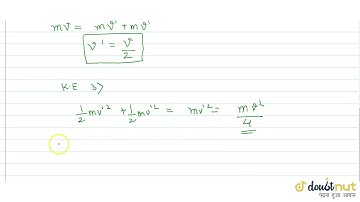 mv = mv' + mv'
v' = v/2
K.E ⇒
1/2 mv'² + 1/2 mv'² = mv'² = mv²/4
doubtnut
पढ़ना हुआ आसान